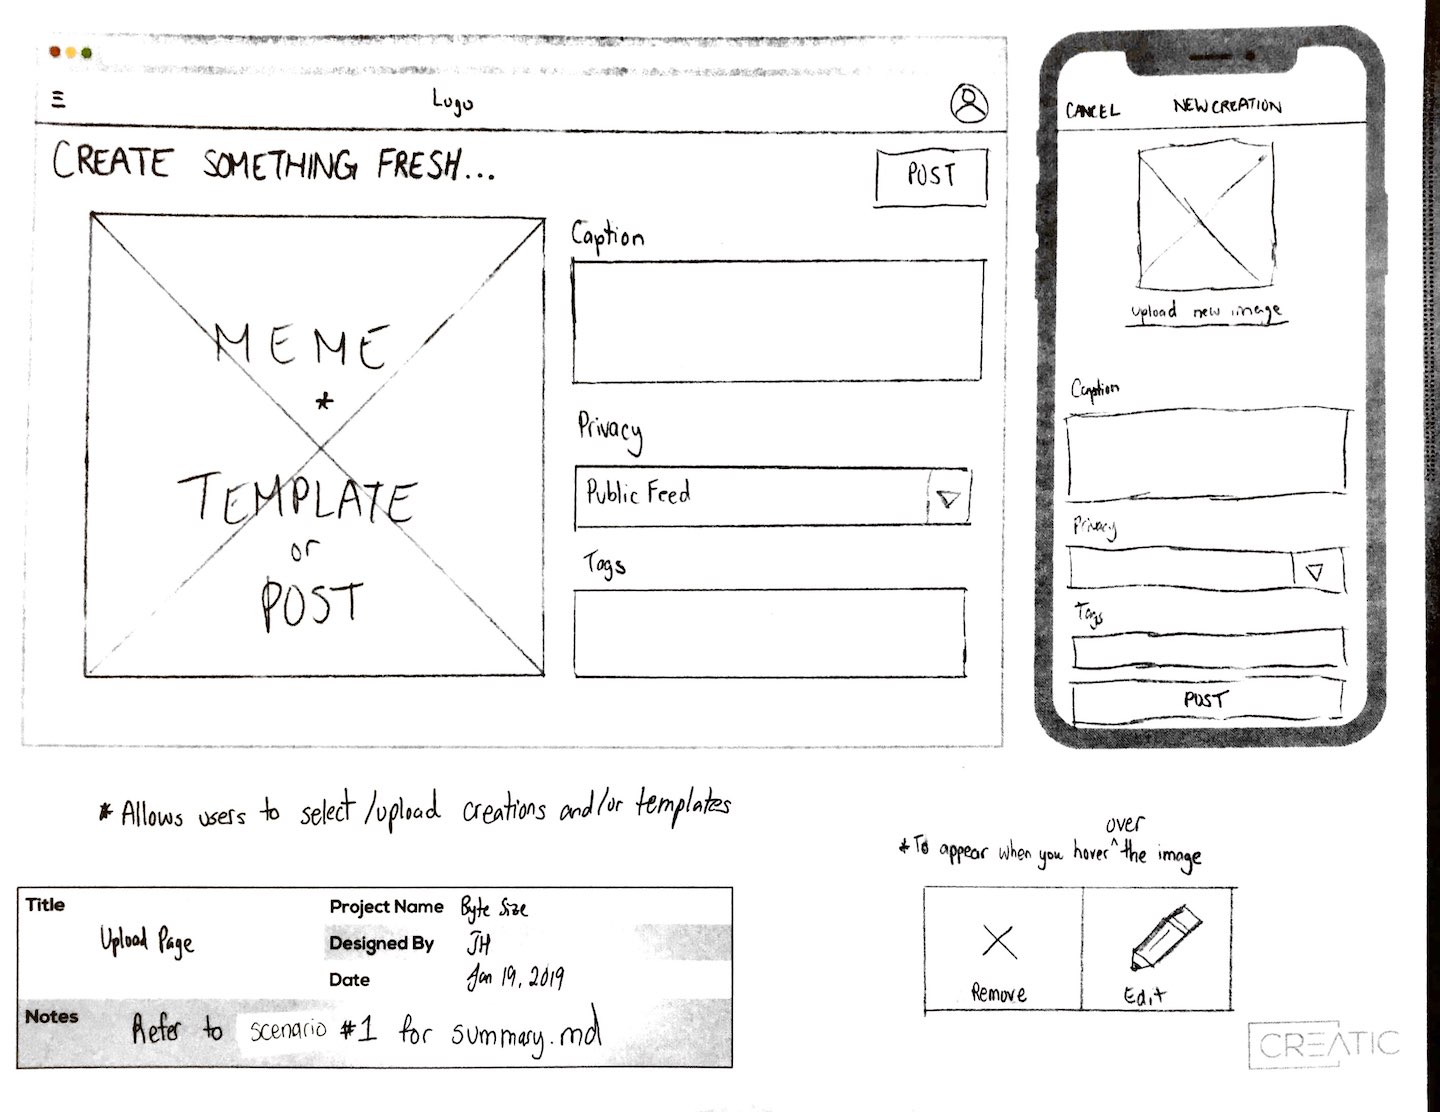 Logo
CREATE SOMETHING FRESH...
POST
MEME
*
TEMPLATE
or
POST
Caption
Privacy
Public Feed
Tags
CANCEL
NEW CREATION
upload new image
Caption
Privacy
Tags
POST
* Allows users to select/upload creations and/or templates
over
* To appear when you hover ^ the image
Remove
Edit
Title
Upload Page
Project Name Byte Size
Designed By JH
Date Jan 19, 2019
Notes
Refer to scenario #1 for summary.md
CREATIC